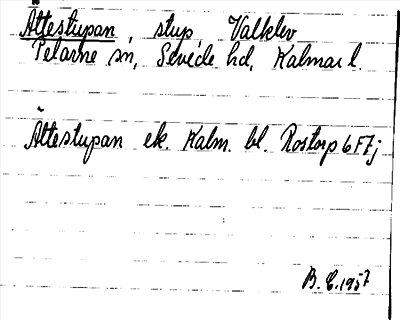 Ättestupan, stup, Valklev
Pelarne sn, Sevede hd, Kalmar l.
Ättestupan ek. Kalm. bl. Rostorp 6F7j
B. E. 1957